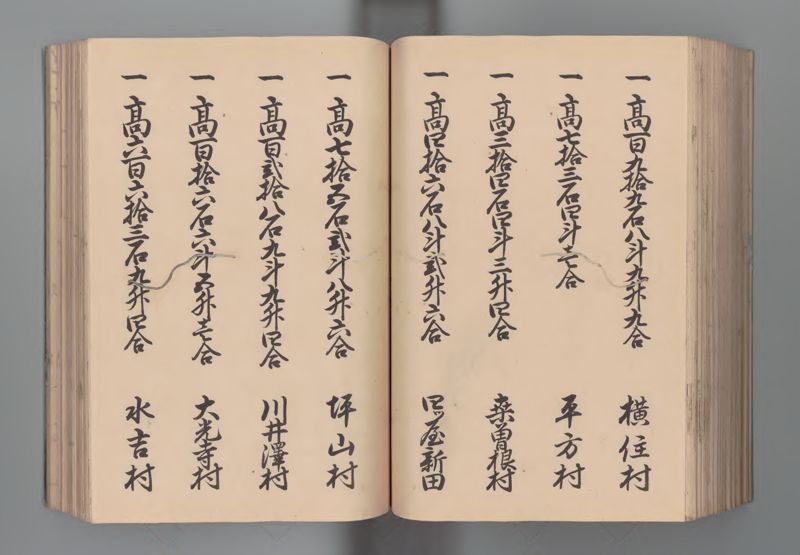 一 高百九拾九石八斗九升九合 横住村
一 高七拾三石四斗壱合 平方村
一 高三拾四石四斗三升四合 桑曽根村
一 高四拾六石八斗弐升六合 四ツ屋新田
一 高七拾五石弐斗八升六合 坪山村
一 高百弐拾八石九斗九升四合 川井澤村
一 高百拾六石六斗五升壱合 大光寺村
一 高六百六拾三石九升四合 水吉村